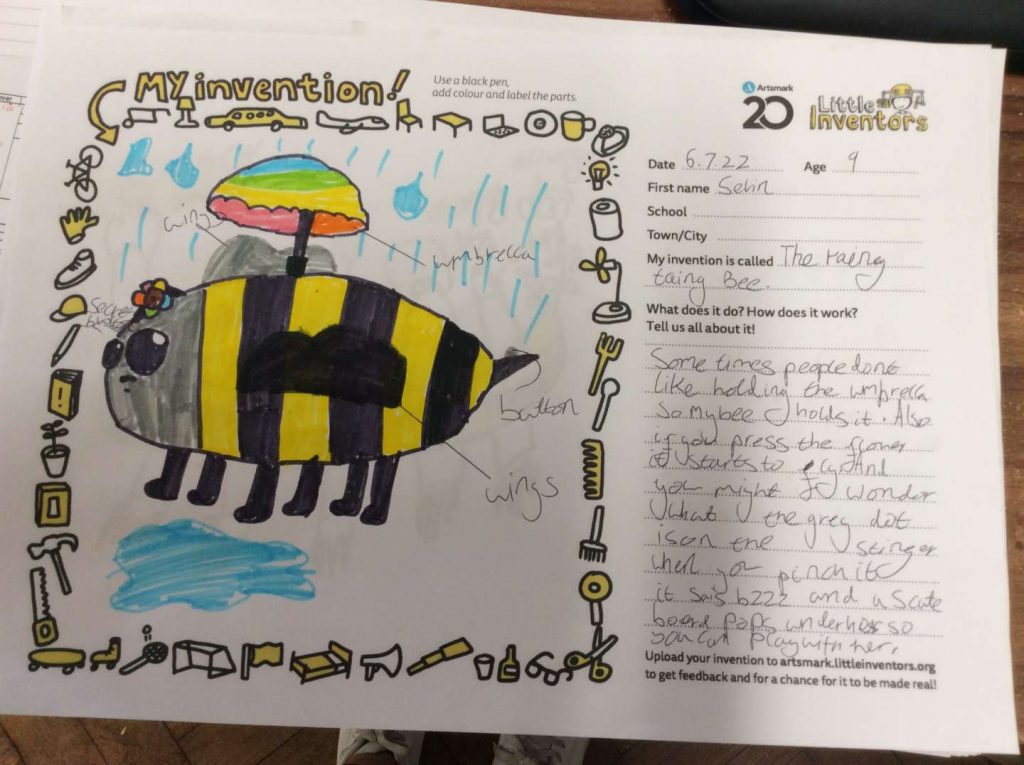 My invention!
Use a black pen,
add colour and label the parts.
wings
umbrella
button
wings
Artsmark
20
Little
Inventors
Date 6.7.22 Age 9
First name
School
Town/City
My invention is called The raing
taing Bee.
What does it do? How does it work?
Tell us all about it!
Some times people dont
like holding the umbrella
so my bee holds it. Also
if you press the flower
it starts to and
you might wonder
what the grey dot
is on the stinger
when you pinch it
it sais bzzz and a scate
board pops under her so
you can play with her.
Upload your invention to artsmark.littleinventors.org
to get feedback and for a chance for it to be made real!